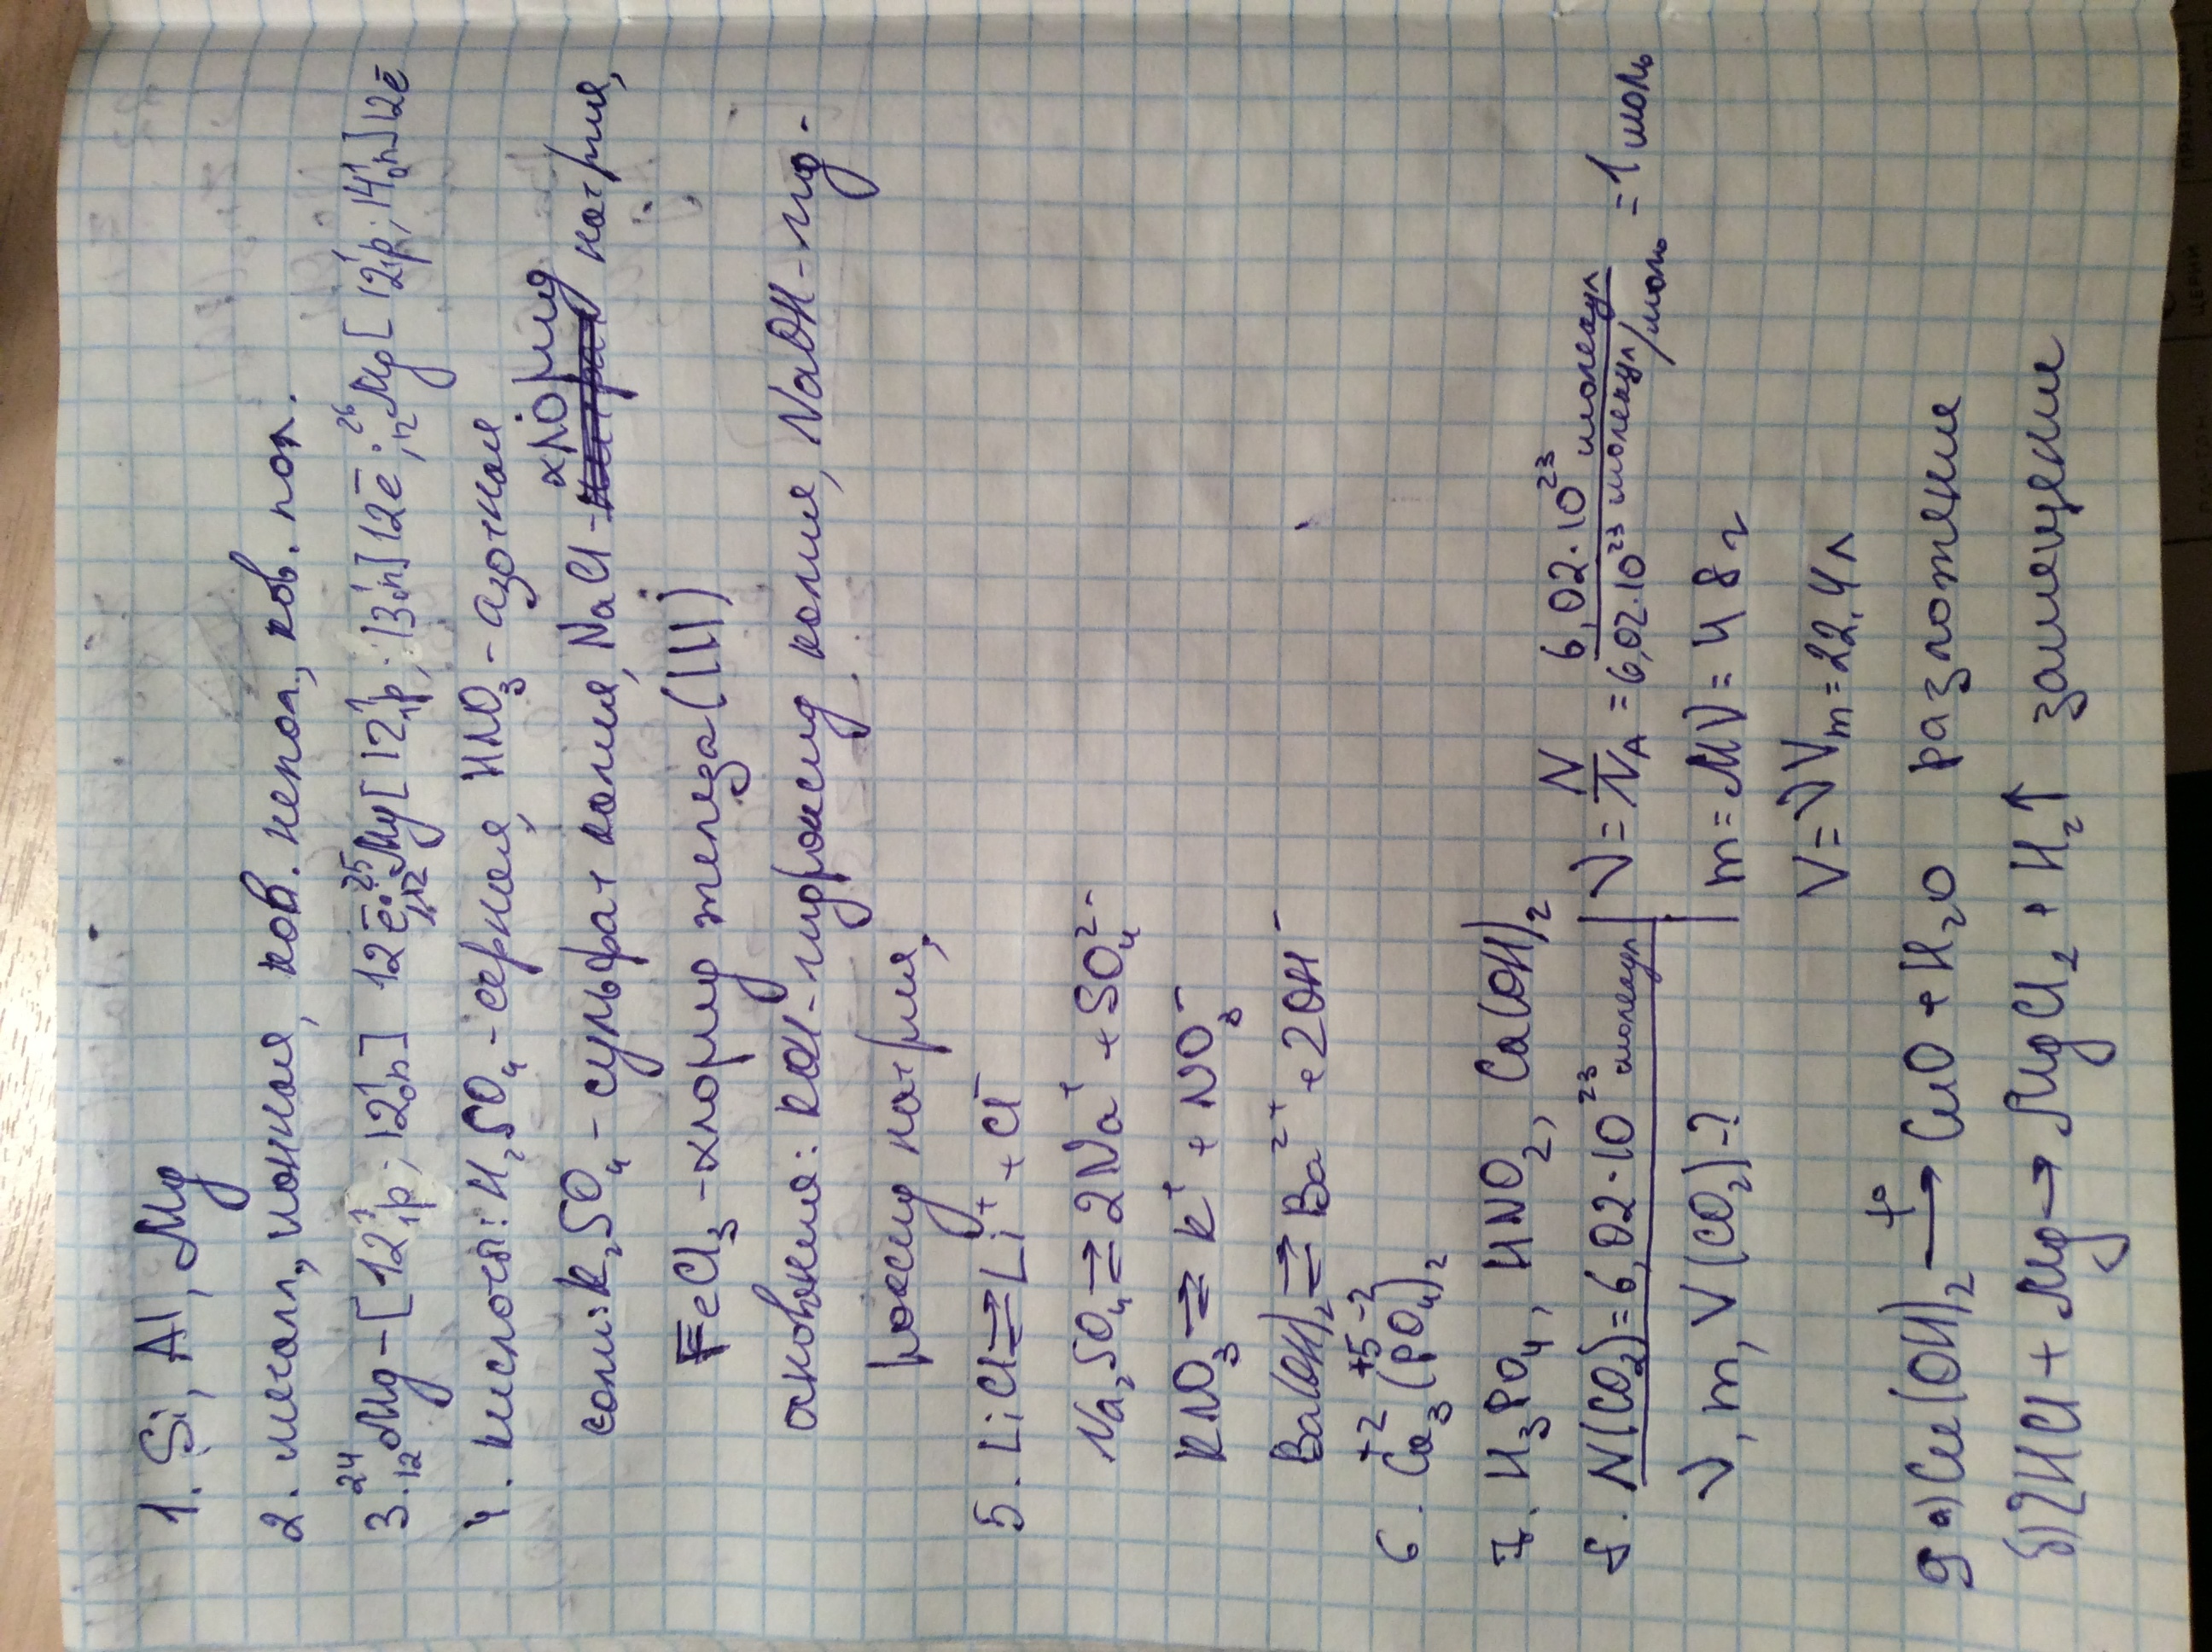 1. Si, Al, Mg
2. металл., ионная, ков. непол., ков. пол.
3. ²⁴₁₂Mg - [12¹₁p; 12¹₀n] 12ē; ²⁵₁₂Mg [12¹₁p; 13¹₀n] 12ē; ²⁶₁₂Mg [12¹₁p; 14¹₀n] 12ē
4. кислоты: H₂SO₄ - серная, HNO₃ - азотная
соли: K₂SO₄ - сульфат калия, NaCl - хлорид натрия,
FeCl₃ - хлорид железа (III)
основания: KOH - гидроксид калия, NaOH - гид-
роксид натрия,
5. LiCl ⇄ Li⁺ + Cl⁻
Na₂SO₄ ⇄ 2Na⁺ + SO₄²⁻
KNO₃ ⇄ K⁺ + NO₃⁻
Ba(OH)₂ ⇄ Ba²⁺ + 2OH⁻
6. +2 +5 -2
Ca₃(PO₄)₂
7. H₃PO₄, HNO₂, Ca(OH)₂
8. N(CO₂) = 6,02·10²³ молекул | ν = N/N_A = 6,02·10²³ молекул / 6,02·10²³ молекул/моль = 1 моль
ν, m, V(CO₂) - ? | m = Mν = 48 г
V = νVm = 22,4л
9 а) Cu(OH)₂ →t° CuO + H₂O разложение
б) 2HCl + Mg → MgCl₂ + H₂↑ замещение